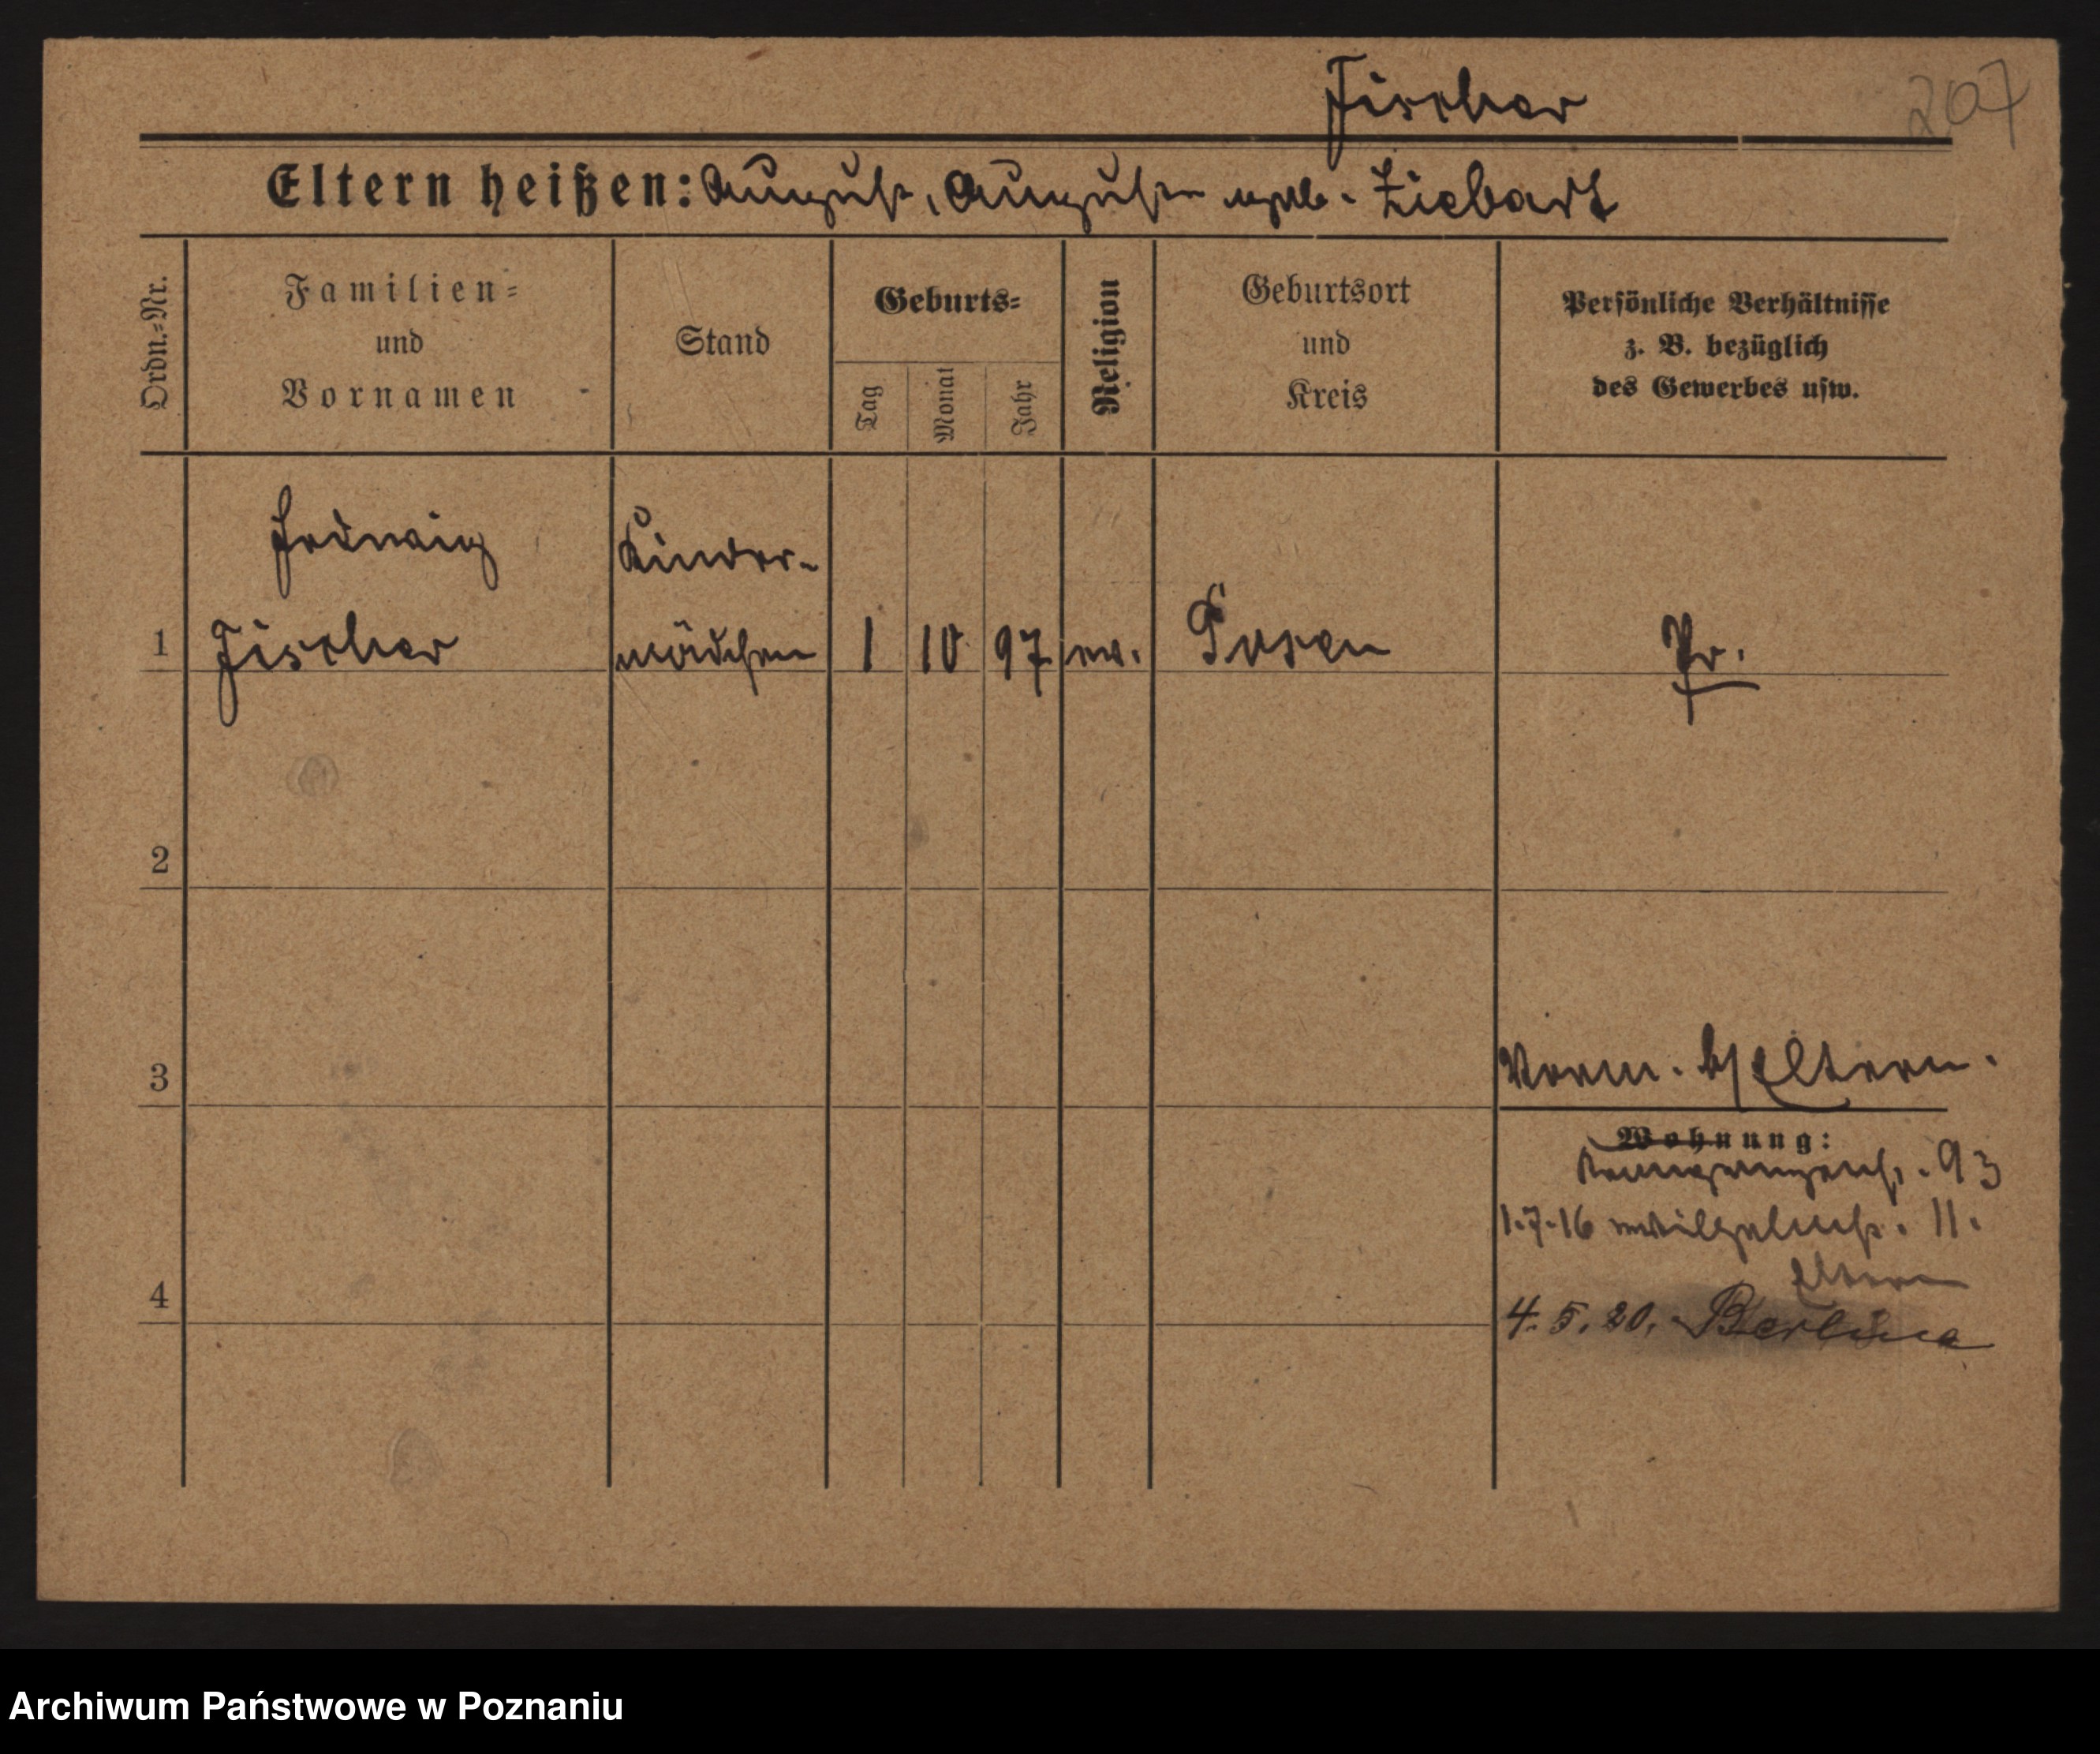 Fischer
207
Eltern heißen: August, Auguste geb. Ziebart
Ordn.-Nr.
Familien-
und
Vornamen
Stand
Geburts-
Tag
Monat
Jahr
Religion
Geburtsort
und
Kreis
Persönliche Verhältnisse
z. B. bezüglich
des Gewerbes usw.
Hedwig
Fischer
Kinder-
mädchen
1
1
10
97
ev.
Posen
Pr.
2
3
Vorm. b/Eltern.
Wohnung:
93
1.7.16 11.
Eltern
4
4.5.20.
Archiwum Państwowe w Poznaniu